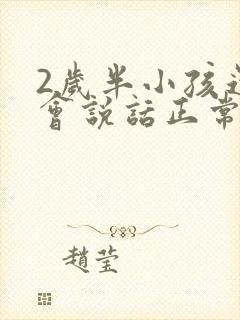 2歲半小孩
會說話正常
趙莹